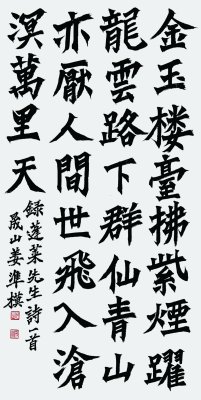 金玉楼臺拂紫煙躍
龍雲路下群仙青山
亦厭人間世飛入滄
溟萬里天
録蓬莱先生詩一首
晟山姜準模